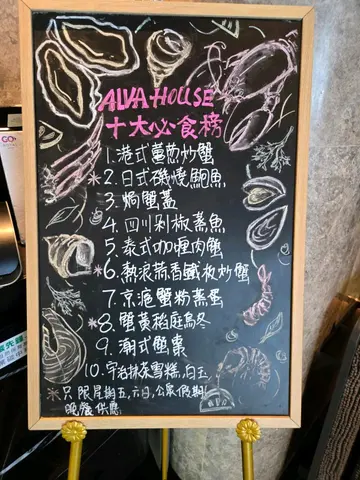 ALVA HOUSE
十大必食榜
1. 港式薑葱炒蟹
*2. 日式磯燒鮑魚
3. 焗蟹蓋
4. 四川剁椒蒸魚
5. 泰式咖喱肉蟹
*6. 熱浪蒜香鐵板炒蟹
7. 京滬蟹粉蒸蛋
*8. 蟹黃稻庭烏冬
9. 潮式蟹棗
10. 宇治抹茶雪糕,白玉
*只限星期五,六,日,公眾假期
晚餐供應